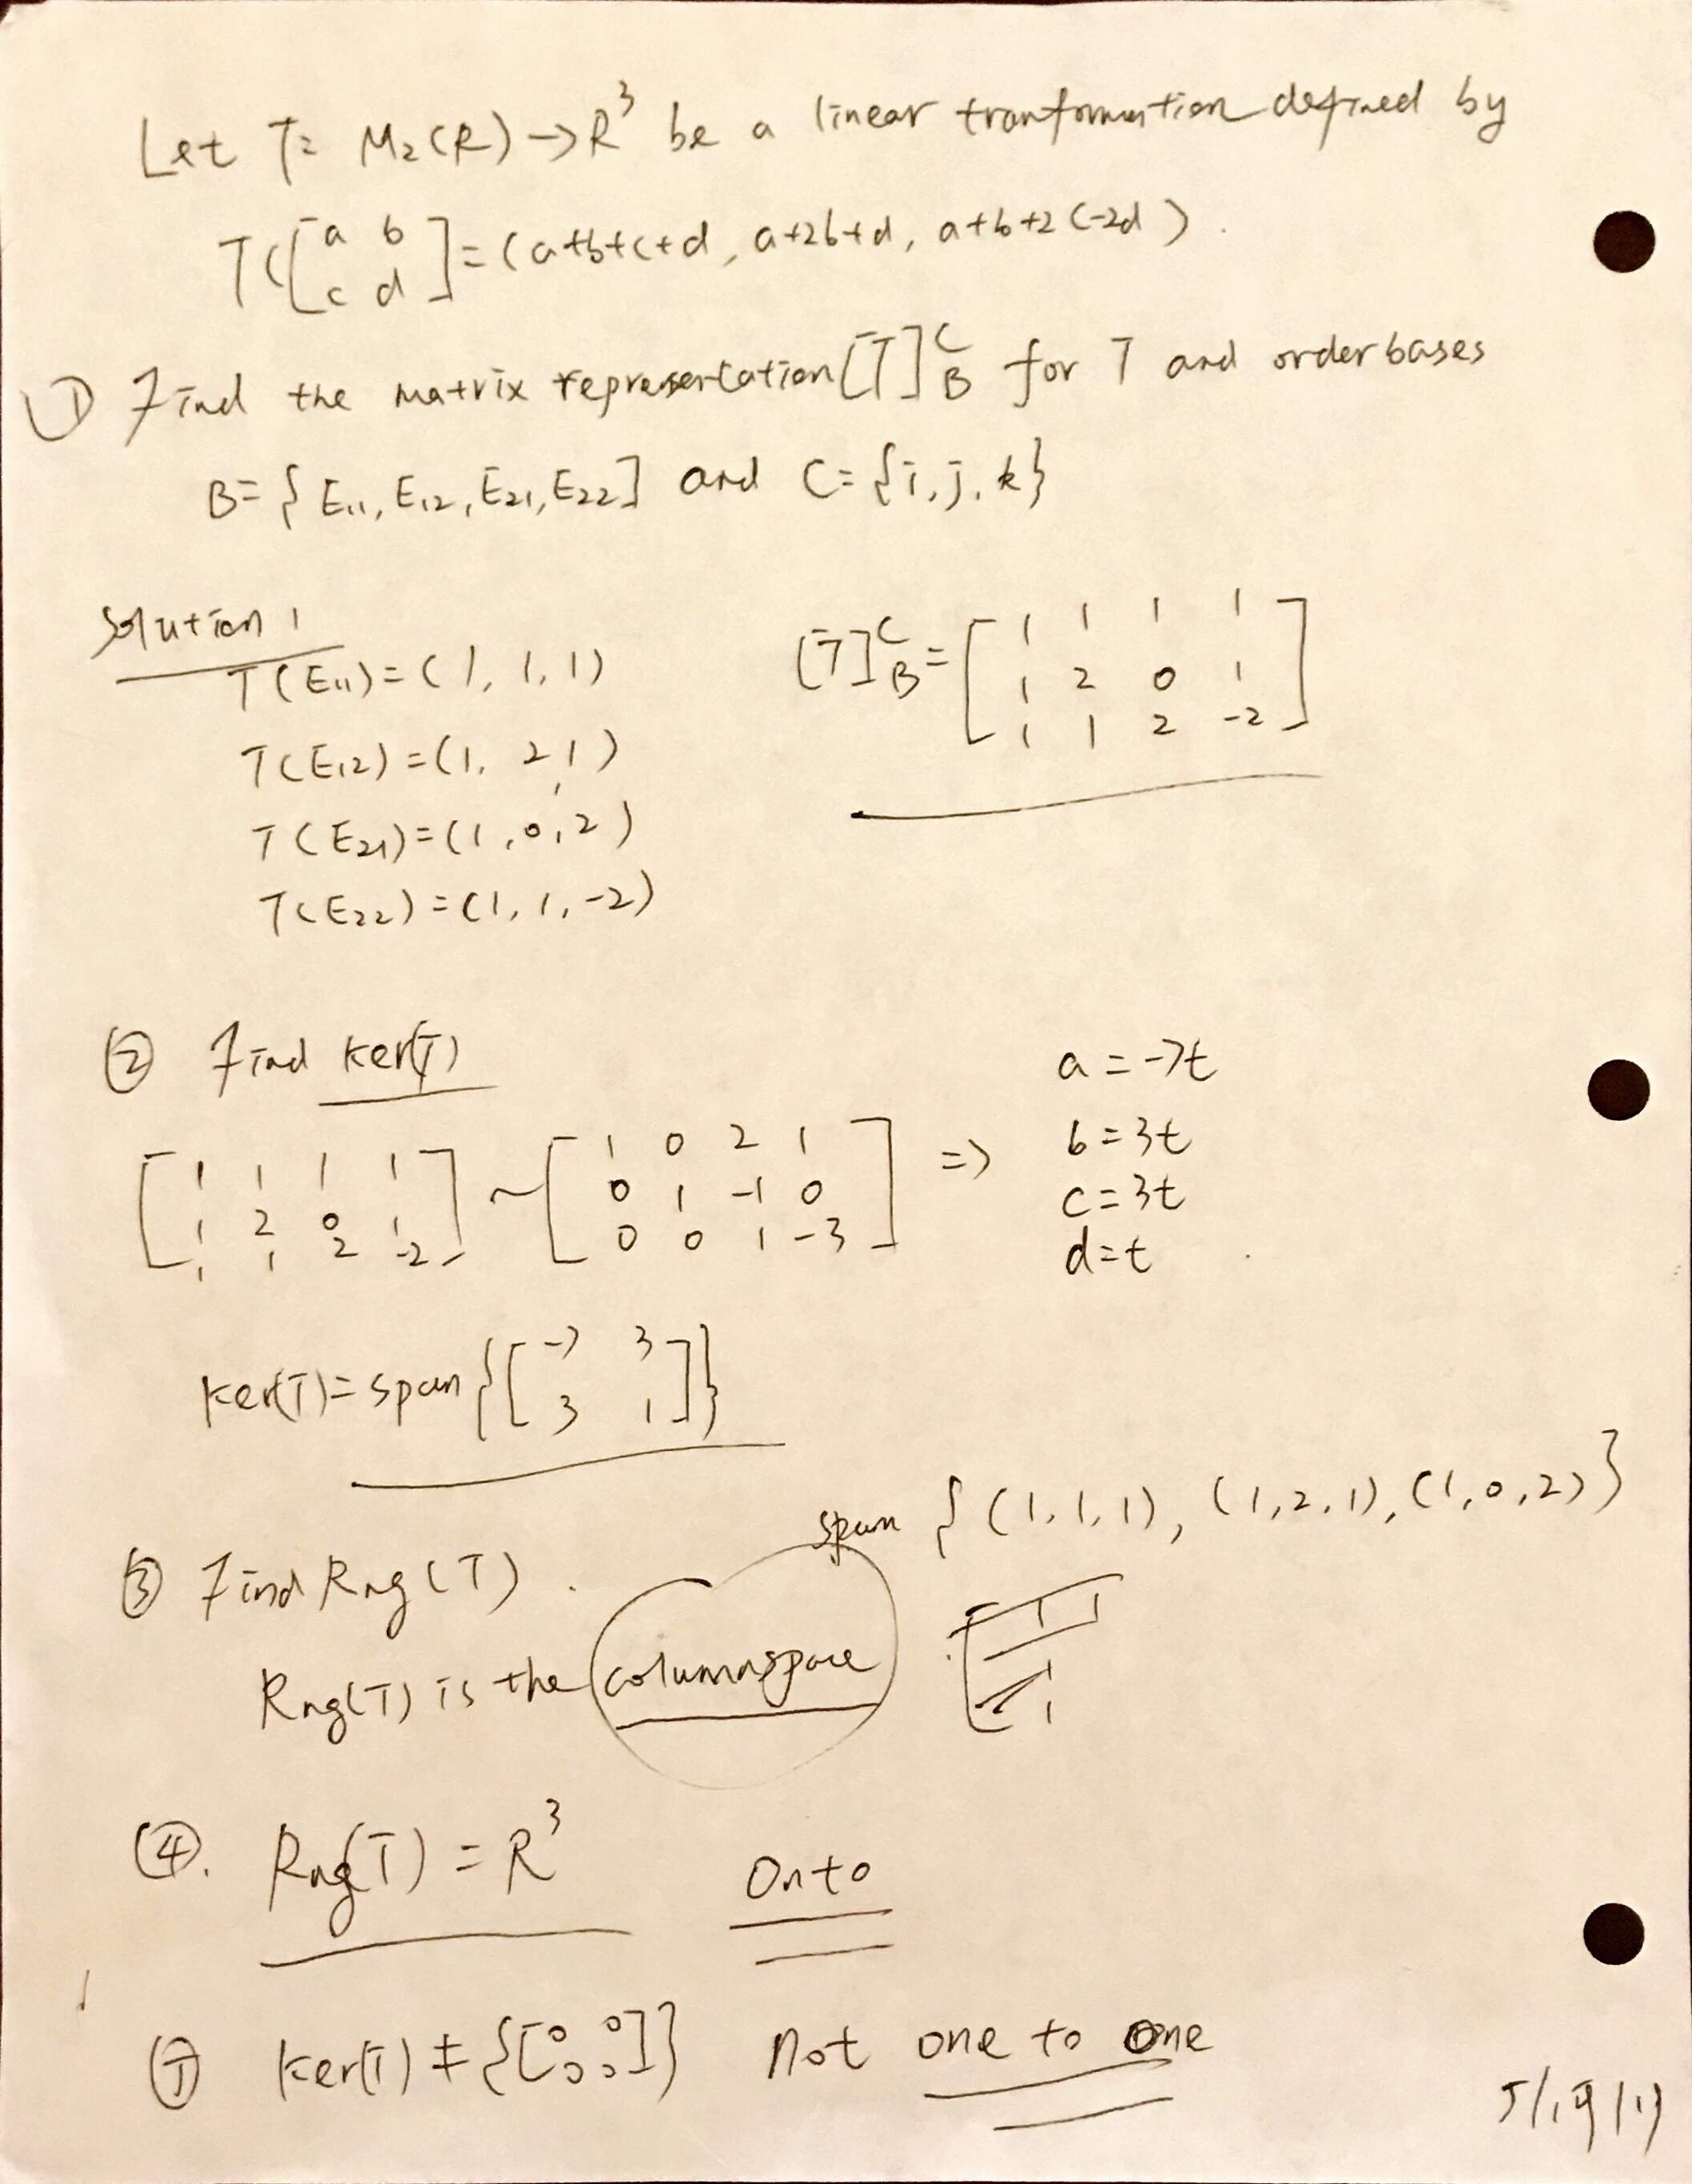 Let T: M₂(R) → R³ be a linear tranformation defined by
T([a b
c d] = (a+b+c+d, a+2b+d, a+b+2c-2d).
① Find the matrix representation [T]_B^C for T and order bases
B = {E₁₁, E₁₂, E₂₁, E₂₂] and C = {i, j, k}
Solution 1
T(E₁₁) = (1, 1, 1)
T(E₁₂) = (1, 2, 1)
T(E₂₁) = (1, 0, 2)
T(E₂₂) = (1, 1, -2)
[T]_B^C = [1 1 1 1
1 2 0 1
1 1 2 -2]
② Find Ker(T)
[1 1 1 1
1 2 0 1
1 1 2 -2]
~ [1 0 2 1
0 1 -1 0
0 0 1 -3] =>
a = -7t
b = 3t
c = 3t
d = t
Ker(T) = span {[-7 3
3 1]}
span {(1, 1, 1), (1, 2, 1), (1, 0, 2)}
③ Find Rng(T).
Rng(T) is the columnspace
④. Rng(T) = R³ Onto
⑤ Ker(T) ≠ {[0 0
0 0]} Not one to one